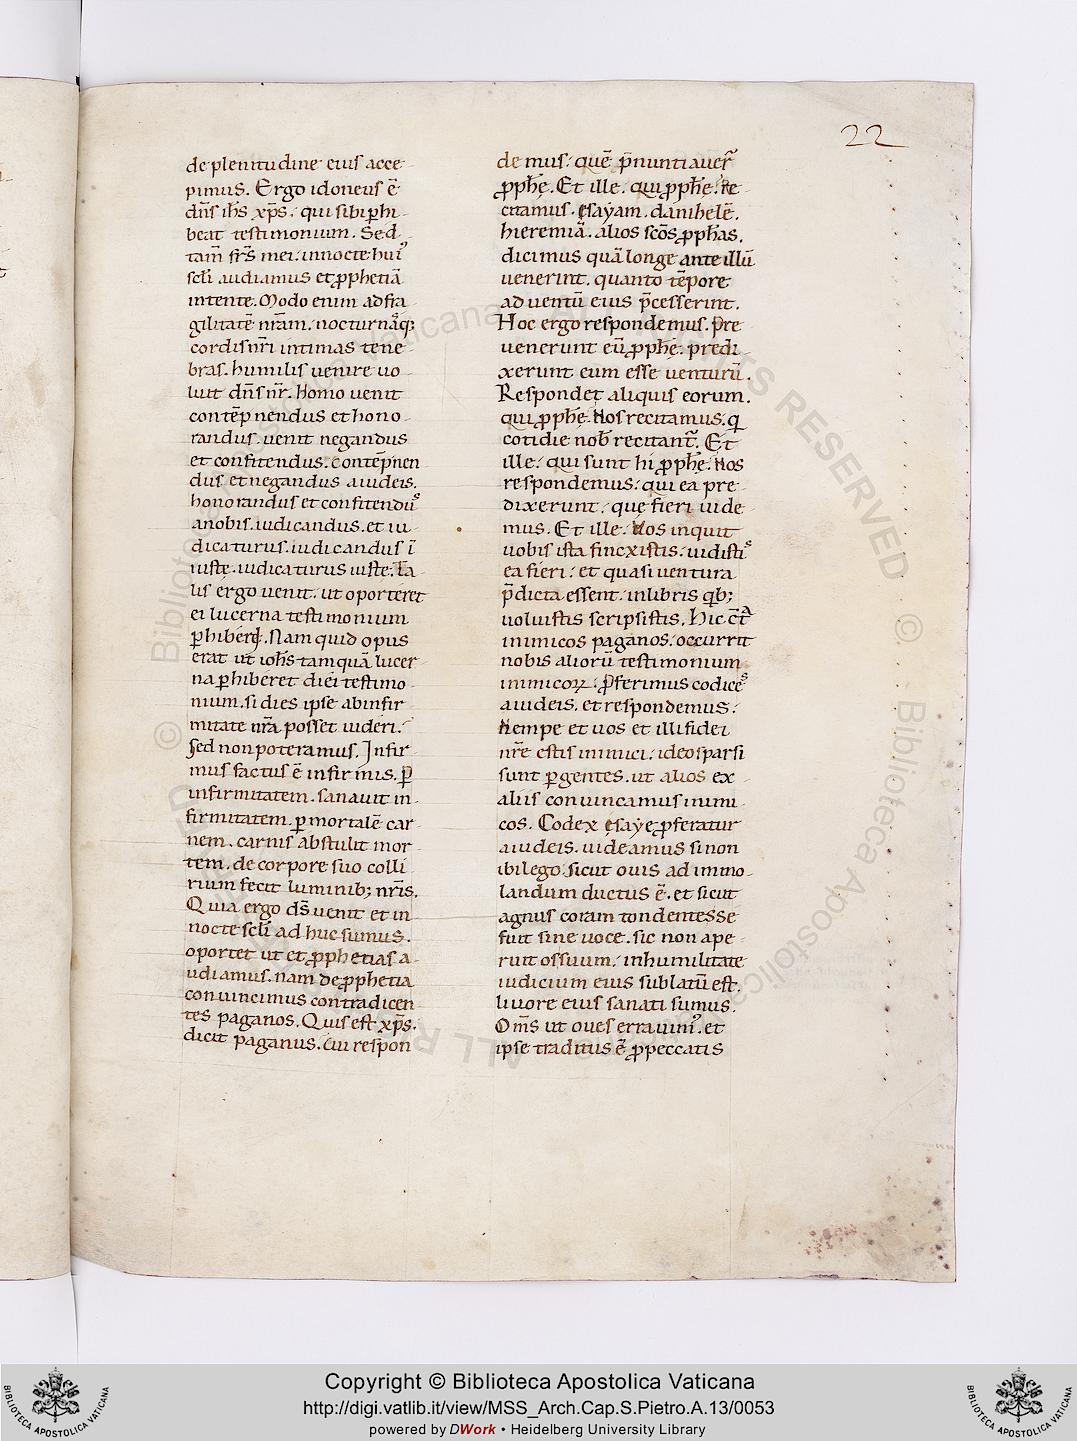 22
de plenitudine eius acce
pimus. Ergo idoneus ē
dn̄s ih̄s xp̄s. qui sibi ꝑhi
beat testimonium. Sed
tam̄ fr̄s mei. in nocte hui᾽
sc̄li audiamus et ꝓphetiā
intente. Modo enim ad fra
gilitatē nr̄am. nocturnāq;
cordis nr̄i intimas tene
bras. humilis uenire uo
luit dn̄s nr̄. Homo uenit
contēpnendus et hono
randus. uenit negandus
et confitendus. Contēpnen
dus et negandus a iudeis.
honorandus et confitendus
a nobis. iudicandus. et iu
dicaturus. iudicandus ī
iuste. iudicaturus iuste. Ta
lis ergo uenit. ut oporteret
ei lucerna testimonium
ꝑhibere. Nam quid opus
erat ut ioh̄s tamquā lucer
na ꝑhiberet diei testimo
nium. si dies ipse ab infir
mitate nr̄a posset uideri.
Sed non poteramus. Infir
mus factus ē infirmis. ꝑ
infirmitatem. sanauit in
firmitatem. ꝑ mortalē car
nem. carnis abstulit mor
tem. de corpore suo colli
rium fecit luminib; nr̄is.
Quia ergo dn̄s uenit et in
nocte sc̄li ad huc sumus.
oportet ut et ꝓphetias a
udiamus. nam de ꝓphetia
conuincimus contradicen
tes paganos. Quis est xp̄s.
dicit paganus. Cui respon
demus. quē p̄nuntiauer̄
ꝓphę. Et ille. qui ꝓphę. Re
citamus. esayam. danihelē.
hieremiā. alios sc̄os ꝓphas.
dicimus quā longe ante illū
uenerint. quanto tēpore
aduentū eius p̄cesserint.
Hoc ergo respondemus. Pre
uenerunt eū ꝓphę. predi
xerunt eum esse uenturū.
Respondet aliquis eorum.
qui ꝓphę. Nos recitamus. q̄
cotidie nob̄ recitant̄. Et
ille. qui sunt hi ꝓphę. Nos
respondemus. qui ea pre
dixerunt. quę fieri uide
mus. Et ille. Nos inquit
uobis ista finxistis. uidistis
ea fieri. et quasi uentura
p̄dicta essent. in libris qb;
uoluistis scripsistis. Hic c̄tᵃ
inimicos paganos. occurrit
nobis aliorū testimonium
inimicoꝝ. ꝓferimus codices
a iudeis. et respondemus.
Nempe et uos et illi fidei
nr̄e estis inimici. ideo sparsi
sunt ꝑ gentes. ut alios ex
aliis conuincamus inimi
cos. Codex esaye ꝓferatur
a iudeis. uideamus si non
ibi lego. sicut ouis ad immo
landum ductus ē. et sicut
agnus coram tondente sse
fuit sine uoce. sic non ape
ruit os suum. in humilitate
iudicium eius sublatū est.
liuore eius sanati sumus.
Om̄s ut oues errauim᾽. et
ipse traditus ē ꝓ peccatis
© Biblioteca Apostolica Vaticana ALL RIGHTS RESERVED
© Biblioteca Apostolica Vaticana ALL RIGHTS RESERVED
BIBLIOTECA APOSTOLICA VATICANA
Copyright © Biblioteca Apostolica Vaticana
http://digi.vatlib.it/view/MSS_Arch.Cap.S.Pietro.A.13/0053
powered by DWork • Heidelberg University Library
BIBLIOTECA APOSTOLICA VATICANA